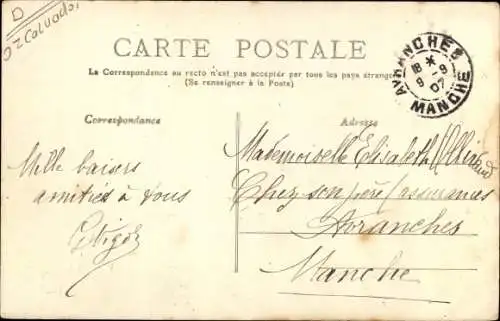 D
Calvados
CARTE POSTALE
La Correspondance au recto n'est pas acceptée par tous les pays étrangers
(Se renseigner à la Poste)
AVRANCHES
18 *
9 - 9
07
MANCHE
Correspondance
Adresse
Mille baisers
amitiés à vous
Mademoiselle Elisabeth
Chez son père (assurances
Avranches
Manche